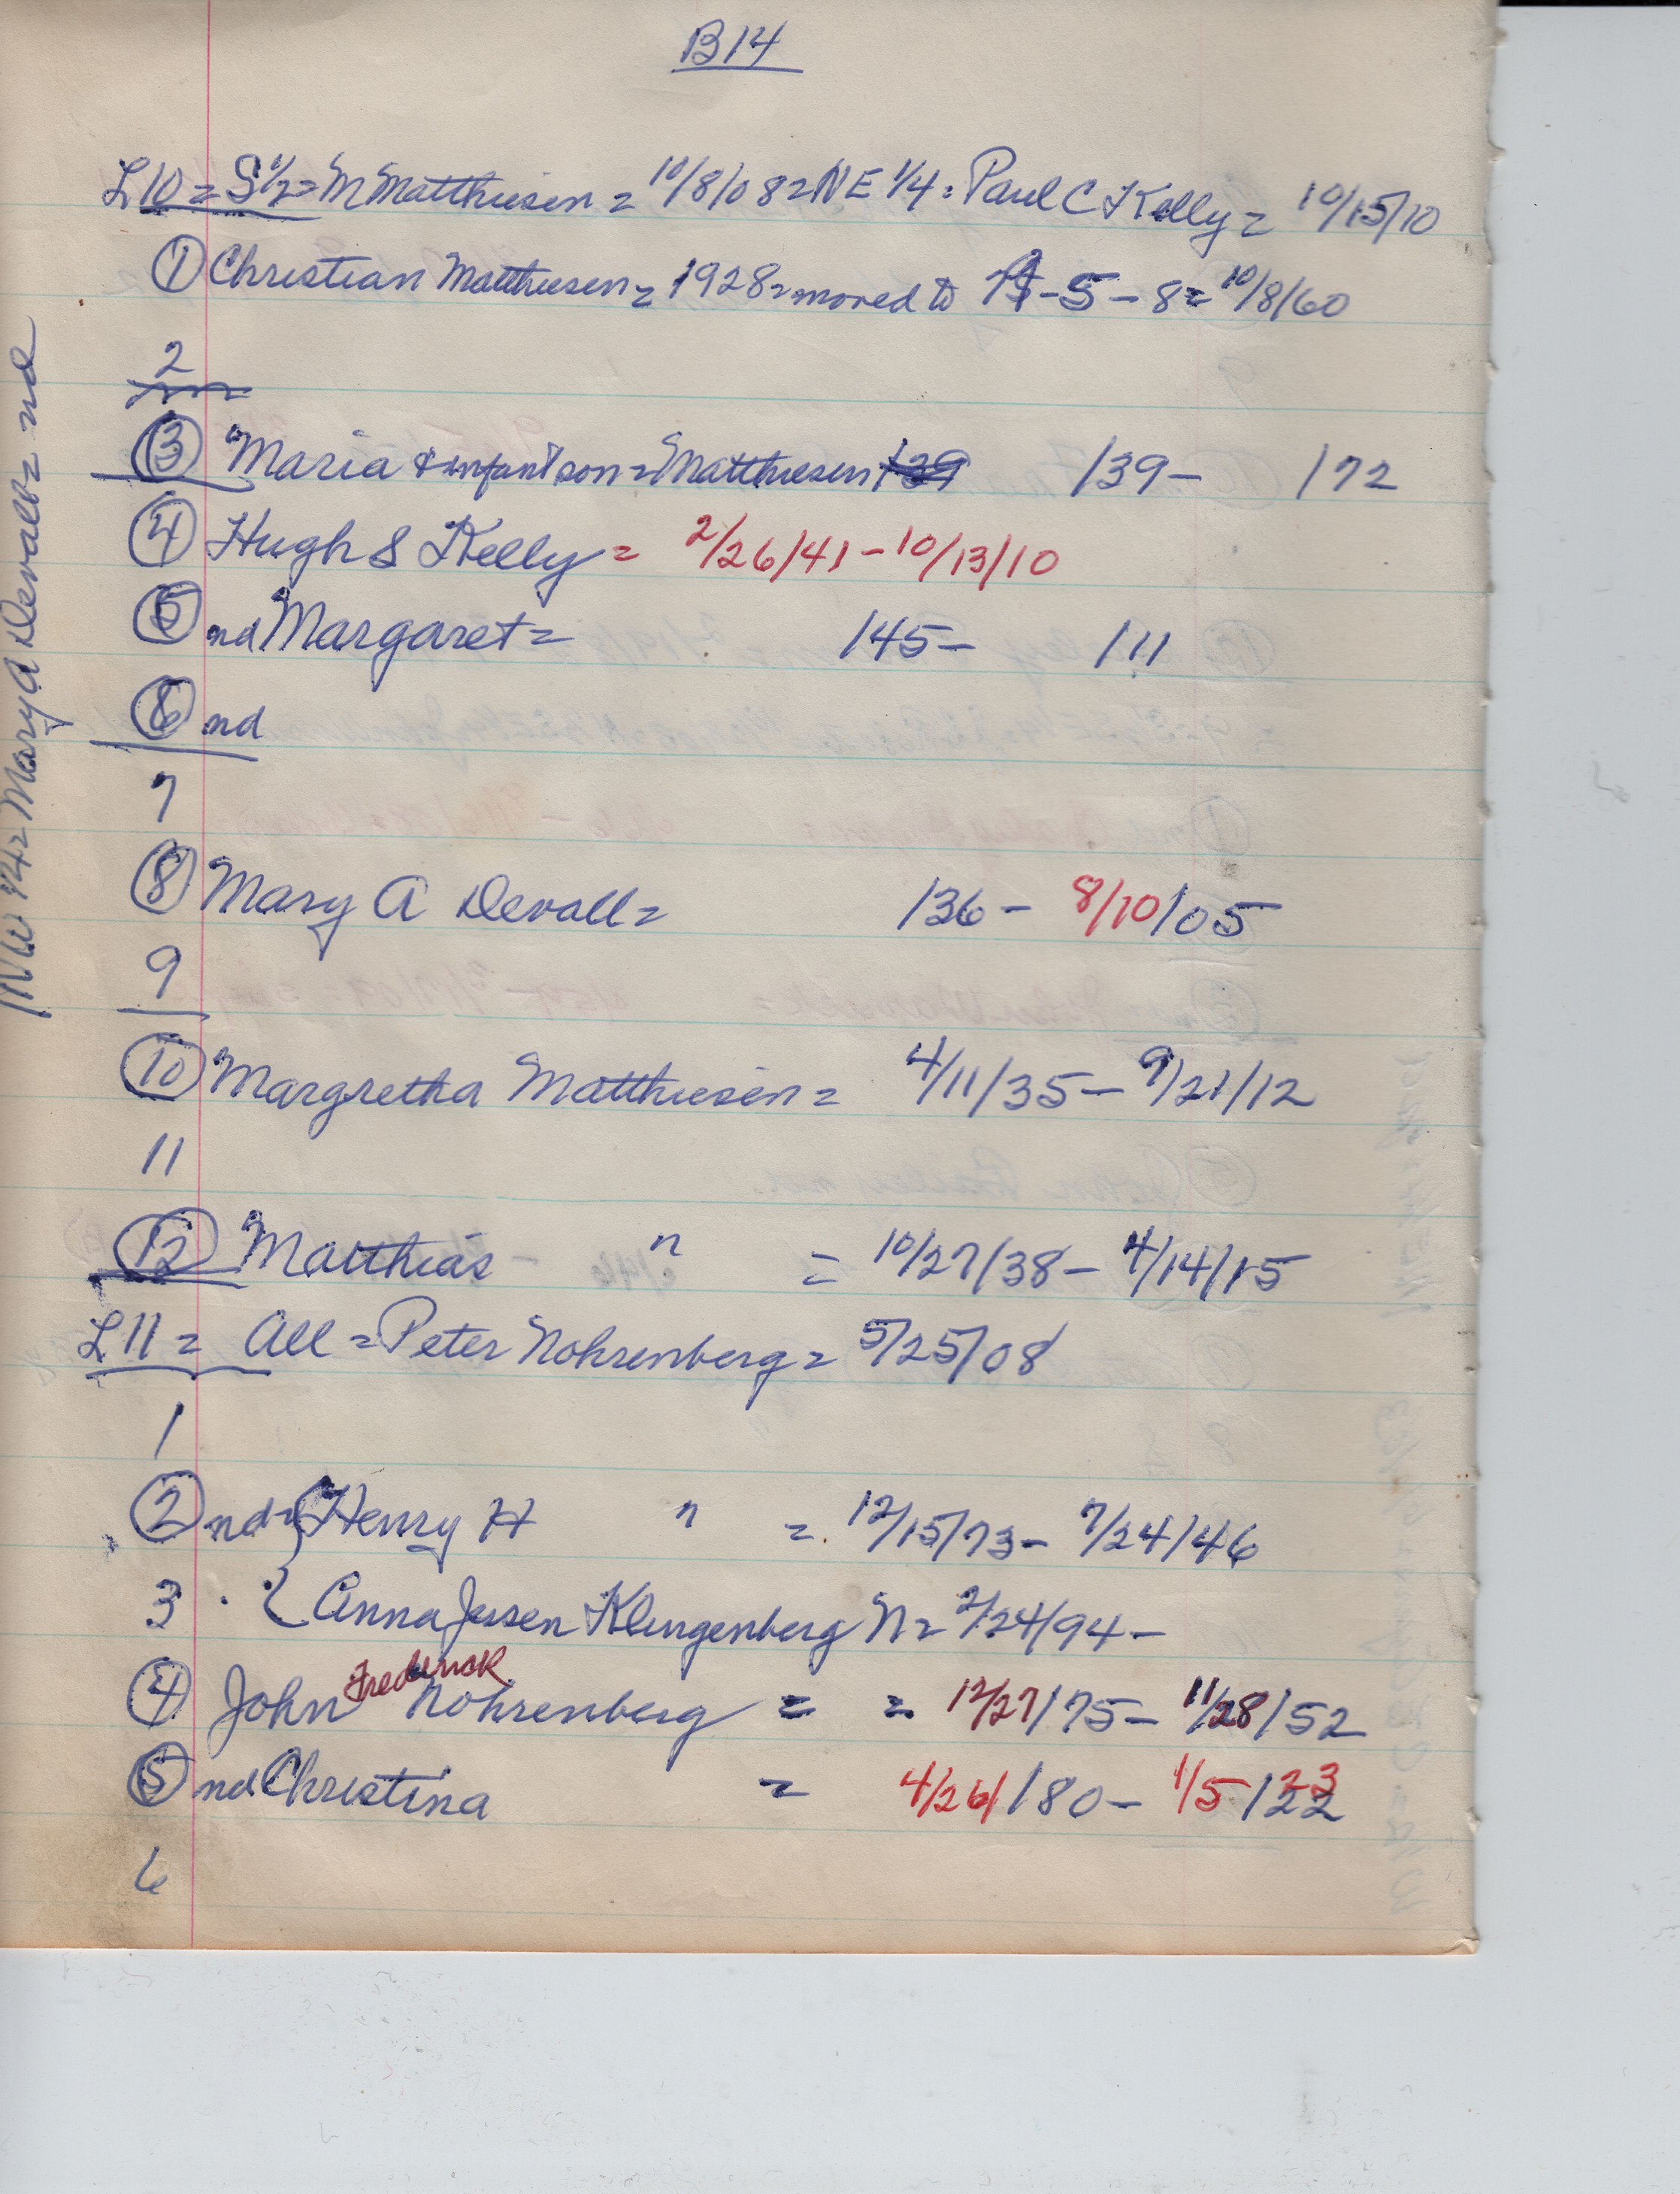 B14
L10 = S 1/2 = M Matthiesen = 10/8/08 = NE 1/4 = Paul C Kelly = 10/15/10
① Christian Matthiesen = 1928 = moved to A-5-8 = 10/8/60
2
③ Maria & infant son = Matthiesen 139 139- 172
④ Hugh S Kelly = 2/26/41 - 10/13/10
⑤ nd Margaret = 145- 111
⑥ nd
7
⑧ Mary A Devall = 136 - 8/10/05
9
⑩ Margretha Matthiesen = 4/11/35 - 9/21/12
11
⑫ Matthias " = 10/27/38 - 4/14/15
L11 = All = Peter Nohrenberg = 5/25/08
1
② nd = { Henry H " = 12/15/73 - 7/24/46
3 { Anna Jessen Klingenberg N = 2/24/94 -
④ John Frederick Nohrenberg = = 12/27/75 - 11/28/52
⑤ nd Christina = 4/26/180 - 1/5/123
6
NW 1/4 = Mary A Devall = nd